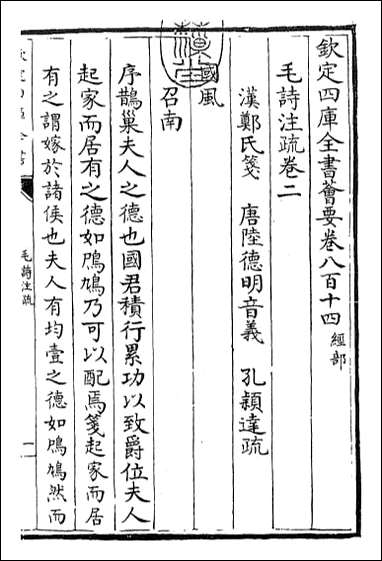 欽定四庫全書薈要卷八百十四 經部
毛詩注疏卷二
漢鄭氏箋 唐陸德明音義 孔穎達疏
國風
召南
序鵲巢夫人之德也國君積行累功以致爵位夫人
起家而居有之德如鳲鳩乃可以配焉箋起家而居
有之謂嫁於諸侯也夫人有均壹之德如鳲鳩然而
毛詩注疏
一